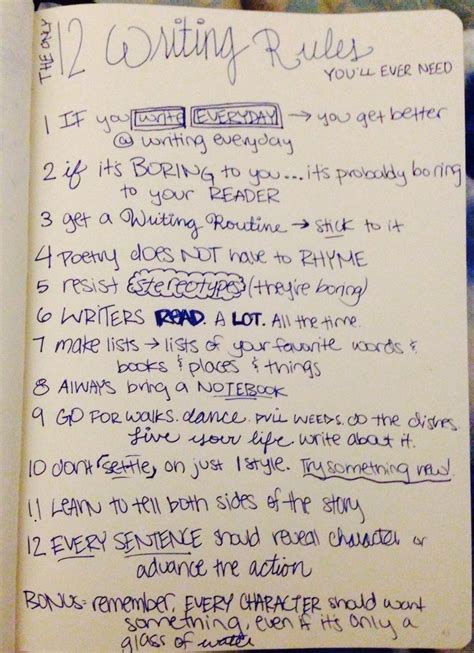 THE ONLY
12 Writing Rules
YOU'LL EVER NEED
1 IF you write EVERYDAY → you get better
@ writing everyday
2 if it's BORING to you...it's probably boring
to your READER
3 get a Writing Routine → stick to it
4 Poetry does NOT have to RHYME
5 resist stereotypes (they're boring)
6 WRITERS READ. A LOT. All the time.
7 make lists → lists of your favorite words &
books & places & things
8 Always bring a NOTEBOOK
9 GO FOR WALKS. dance. PULL WEEDS. do the dishes.
Live your life. write about it.
10 don't settle, on just 1 style. Try something new!
11 LEARN to tell both sides of the story
12 EVERY SENTENCE should reveal character or
advance the action
BONUS- remember, EVERY CHARACTER should want
something, even if it's only a
glass of water